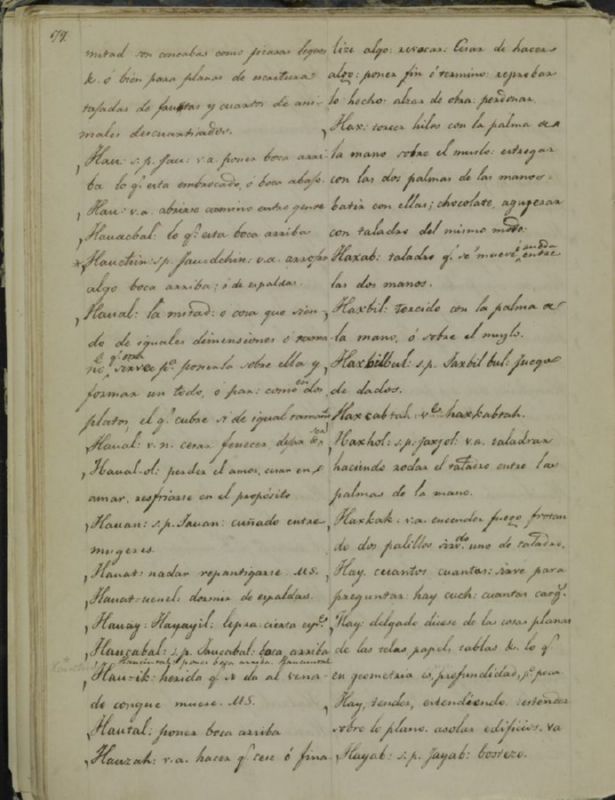 mitad son concabas como jicaras leques
&. ó bien para planas de escritura
tajadas de frutas y cuartos de ani-
males descuartisados.
Hau: s.p. Jau: v.a. poner boca arri-
ba lo q.e esta embrocado, ó boca abajo.
Hau: v.a. abrirse camino entre gente
Hauacbal: lo q.e esta boca arriba
algo boca arriba; ó de espaldas.
Haual: la mitad: o cosa que sien
do de iguales dimenciones ó tama
no, sirve p.a ponerla sobre ella y
formar un todo, ó par: como en dos
platos, el q.e cubre si de igual tamaño
Haual: v.n. cesar fenecer
Haual-ol: perder el amor, cesar en
amar, resfriarse en el propósito
Hauan: s.p. Jauan: cuñado entre
mugeres.
Hauat: nadar repantigarse. MS.
Hauat-uenel: dormir de espaldas.
Hauay: Hayayil: lepra: cierta
Haucabal: s.p. Jaucabal: boca arriba
poner boca arriba.
Hau-ik: herida q.e se da al vena-
do conque muere. MS.
Hautal: poner boca arriba
Hauzah: v.a. hacer q.e cese ó fina
lize algo: revocar: Cesar de hacer
algo: poner fin ó termino: reprobar
lo hecho: alzar de obra: perdonar.
Hax: torcer hilos con la palma de
la mano sobre el muslo: estregar
con las dos palmas de las manos.
batir con ellas; chocolate, agugerar
con taladro del mismo modo.
Haxab: taladro q.e se mueve entre
las dos manos.
Haxbil: torcido con la palma de
la mano, ó sobre el muslo.
Haxbilbul: s.p. Jaxbil bul: juego
de dados.
Haxcabtah. haxkabtah.
Haxhol: s.p. jaxjol: v.a. taladrar
haciendo rodar el taladro entre las
palmas de la mano.
Haxkak. v.a. encender fuego frotan
do dos palillos sirv.do uno de taladro.
Hay. cuantos cuantas: sirve para
preguntar: hay cuch: cuantas carg.s
Hay: delgado dicese de las cosas planas
de las telas papel, tablas &. lo q.e
en geometria es, profundidad,
Hay, tender, estendiendo: estender
sobre lo plano. asolar edificios. va
Hayab: s.p. Jayab: bostezo.